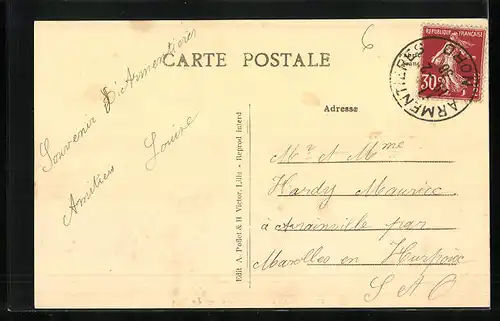 CARTE POSTALE
6
REPUBLIQUE FRANÇAISE
30c
ARMENTIERES
NORD
Souvenir d'Armentières
Amitiés Louise
Adresse
Mr et Mme
Hardy Maurice
à Avrainville par
Marolles en Hurpoix
S et O
Edit A. Pollet & H Victor, Lille - Reprod Interd